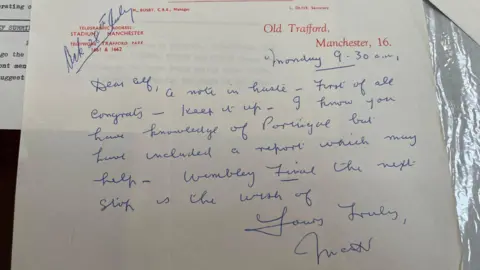 BUSBY, C.B.E., Manager
Secretary
TELEGRAPHIC ADDRESS:
STADIUM MANCHESTER
Old Trafford,
Manchester, 16.
Monday 9-30 a.m,
Dear Alf,
A note in haste - First of all
Congrats - keep it up - I know you
have knowledge of Portugal but
have included a report which may
help - Wembley Final the next
stop is the wish of
Yours Truly,
Matt